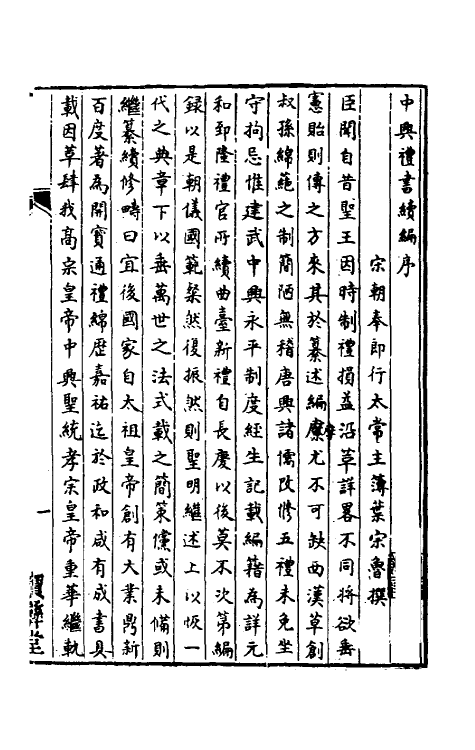 中興禮書續編序
宋朝奉郎行太常主簿葉宗魯撰
臣聞自昔聖王因時制禮損益沿革詳畧不同將欲垂
憲貽則傳之方來其於纂述編縻尤不可缺西漢草創
叔孫綿蕝之制簡陋無稽唐興諸儒改修五禮未免坐
守拘忌惟建武中興永平制度經生記載編籍為詳元
和郅隆禮官所續曲臺新禮自長慶以後莫不次第編
録以是朝儀國範粲然復振然則聖明繼述上以恢一
代之典章下以垂萬世之法式載之簡策儻或未備則
繼纂續修疇曰宜後國家自太祖皇帝創有大業鼎新
百度著為開寶通禮綿歴嘉祐迄於政和咸有成書具
載因革肆我髙宗皇帝中興聖統孝宗皇帝重華繼軌
一